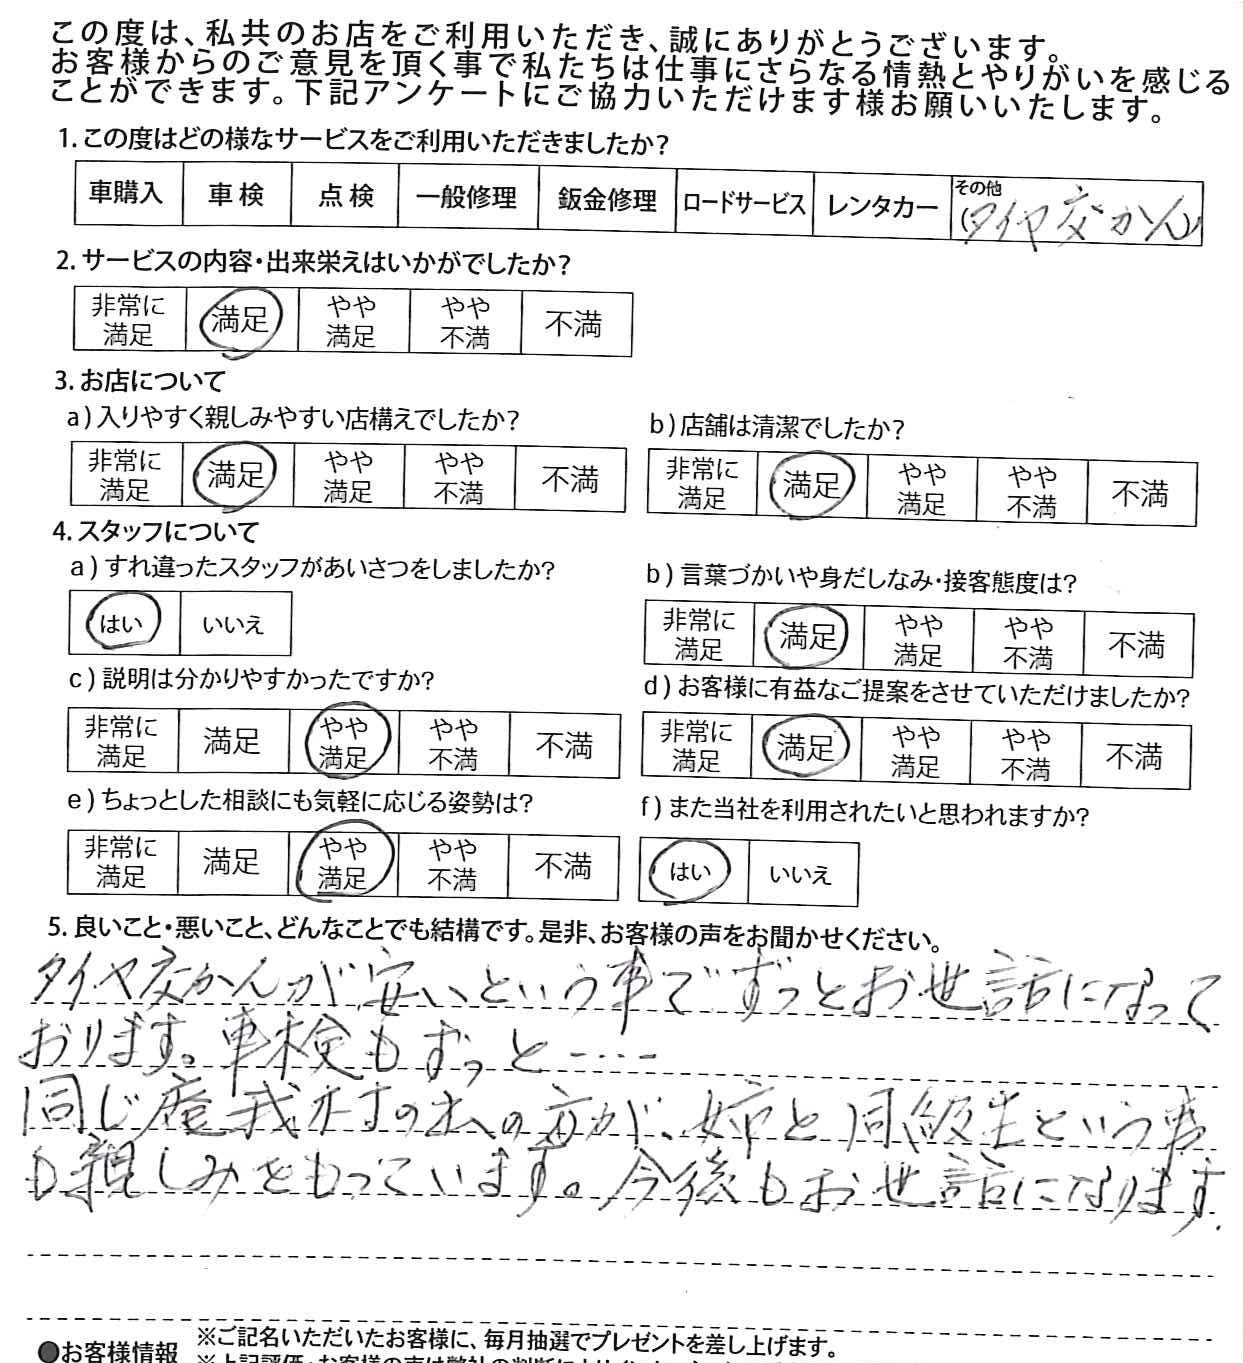 この度は、私共のお店をご利用いただき、誠にありがとうございます。
お客様からのご意見を頂く事で私たちは仕事にさらなる情熱とやりがいを感じる
ことができます。下記アンケートにご協力いただけます様お願いいたします。
1. この度はどの様なサービスをご利用いただきましたか?
車購入 車検 点検 一般修理 鈑金修理 ロードサービス レンタカー その他
(タイヤ交かん)
2. サービスの内容・出来栄えはいかがでしたか?
非常に満足 満足 やや満足 やや不満 不満
3. お店について
a) 入りやすく親しみやすい店構えでしたか?
非常に満足 満足 やや満足 やや不満 不満
b) 店舗は清潔でしたか?
非常に満足 満足 やや満足 やや不満 不満
4. スタッフについて
a) すれ違ったスタッフがあいさつをしましたか?
はい いいえ
b) 言葉づかいや身だしなみ・接客態度は?
非常に満足 満足 やや満足 やや不満 不満
c) 説明は分かりやすかったですか?
非常に満足 満足 やや満足 やや不満 不満
d) お客様に有益なご提案をさせていただけましたか?
非常に満足 満足 やや満足 やや不満 不満
e) ちょっとした相談にも気軽に応じる姿勢は?
非常に満足 満足 やや満足 やや不満 不満
f) また当社を利用されたいと思われますか?
はい いいえ
5. 良いこと・悪いこと、どんなことでも結構です。是非、お客様の声をお聞かせください。
タイヤ交かんが安いという事でずっとお世話になって
おります。車検もずっと‥‥
同じ産我村の出の方が、姉と同級生という事
も親しみをもっています。今後もお世話になります.
●お客様情報 ※ご記名いただいたお客様に、毎月抽選でプレゼントを差し上げます。